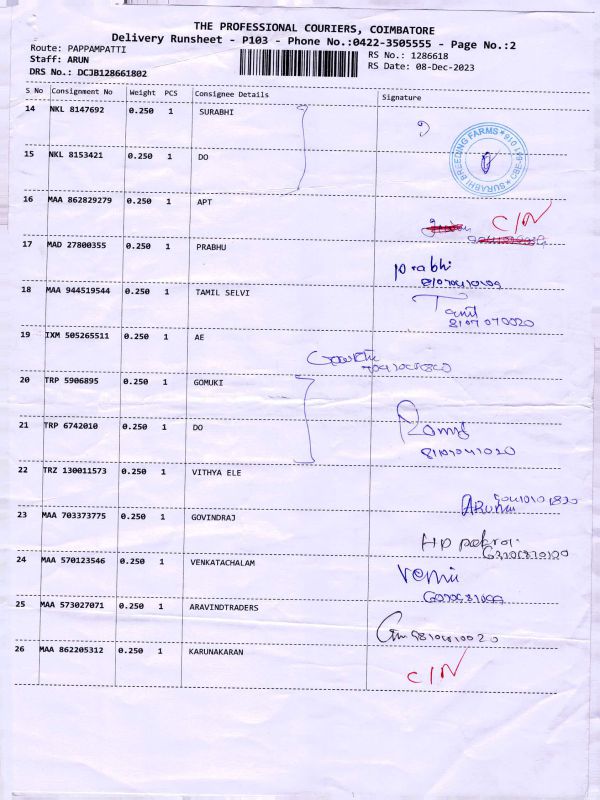 THE PROFESSIONAL COURIERS, COIMBATORE
Delivery Runsheet - P103 - Phone No.:0422-3505555 - Page No.:2
Route: PAPPAMPATTI
RS No.: 1286618
Staff: ARUN
RS Date: 08-Dec-2023
DRS No.: DCJB128661802
S No Consignment No Weight PCS Consignee Details Signature
14 NKL 8147692 0.250 1 SURABHI
SURABHI BREEDING FARMS
15 NKL 8153421 0.250 1 DO
16 MAA 862829279 0.250 1 APT
C/N
17 MAD 27800355 0.250 1 PRABHU
prabhi
18 MAA 944519544 0.250 1 TAMIL SELVI
19 IXM 505265511 0.250 1 AE
20 TRP 5906895 0.250 1 GOMUKI
21 TRP 6742010 0.250 1 DO
22 TRZ 130011573 0.250 1 VITHYA ELE
23 MAA 703373775 0.250 1 GOVINDRAJ
24 MAA 570123546 0.250 1 VENKATACHALAM
25 MAA 573027071 0.250 1 ARAVINDTRADERS
26 MAA 862205312 0.250 1 KARUNAKARAN
C/N